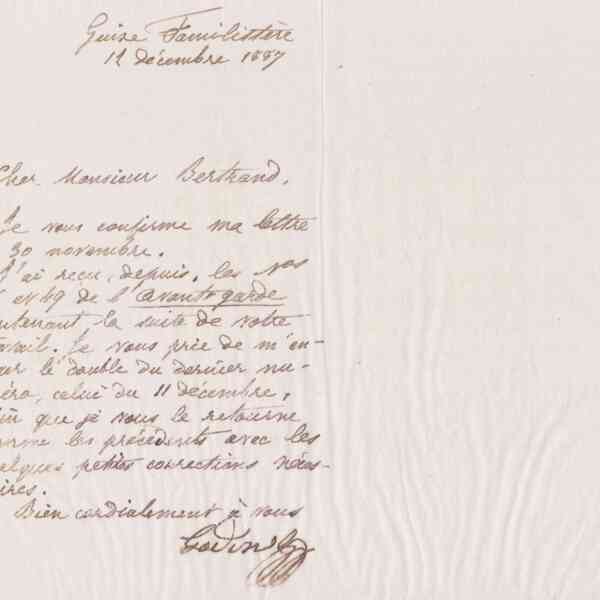 Guise Familistère
12 décembre 1887
Cher Monsieur Bertrand,
Je vous confirme ma lettre
30 novembre.
J'ai reçu, depuis, les nos
et 49 de l'avant-garde
ntenant la suite de votre
avail. Je vous prie de m'en-
er le double du dernier nu-
éro, celui du 11 décembre,
in que je vous le retourne
mme les précédents avec les
elques petites corrections néces-
ires.
Bien cordialement à vous
Godin